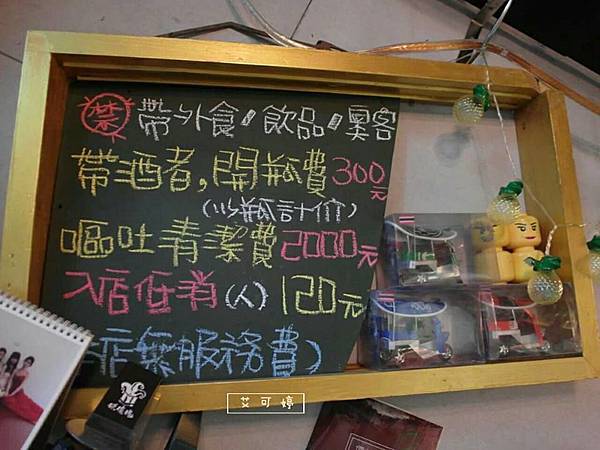 禁帶外食/飲品/奧客
帶酒者,開瓶費300元
(以瓶計价)
嘔吐清潔費2000元
入店低消(人)120元
店無服務費)
艾可婷